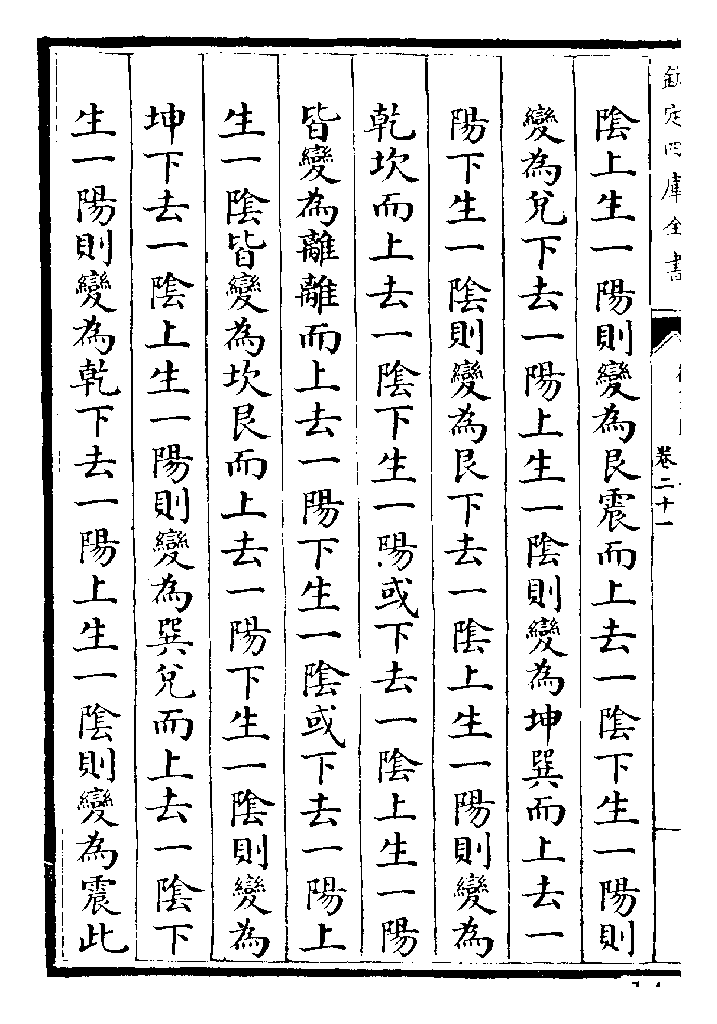 欽定四庫全書
卷二十一
陰上生一陽則變為艮震而上去一陰下生一陽則
變為兌下去一陽上生一陰則變為坤巽而上去一
陽下生一陰則變為艮下去一陰上生一陽則變為
乾坎而上去一陰下生一陽或下去一陰上生一陽
皆變為離離而上去一陽下生一陰或下去一陽上
生一陰皆變為坎艮而上去一陽下生一陰則變為
坤下去一陰上生一陽則變為巽兌而上去一陰下
生一陽則變為乾下去一陽上生一陰則變為震此